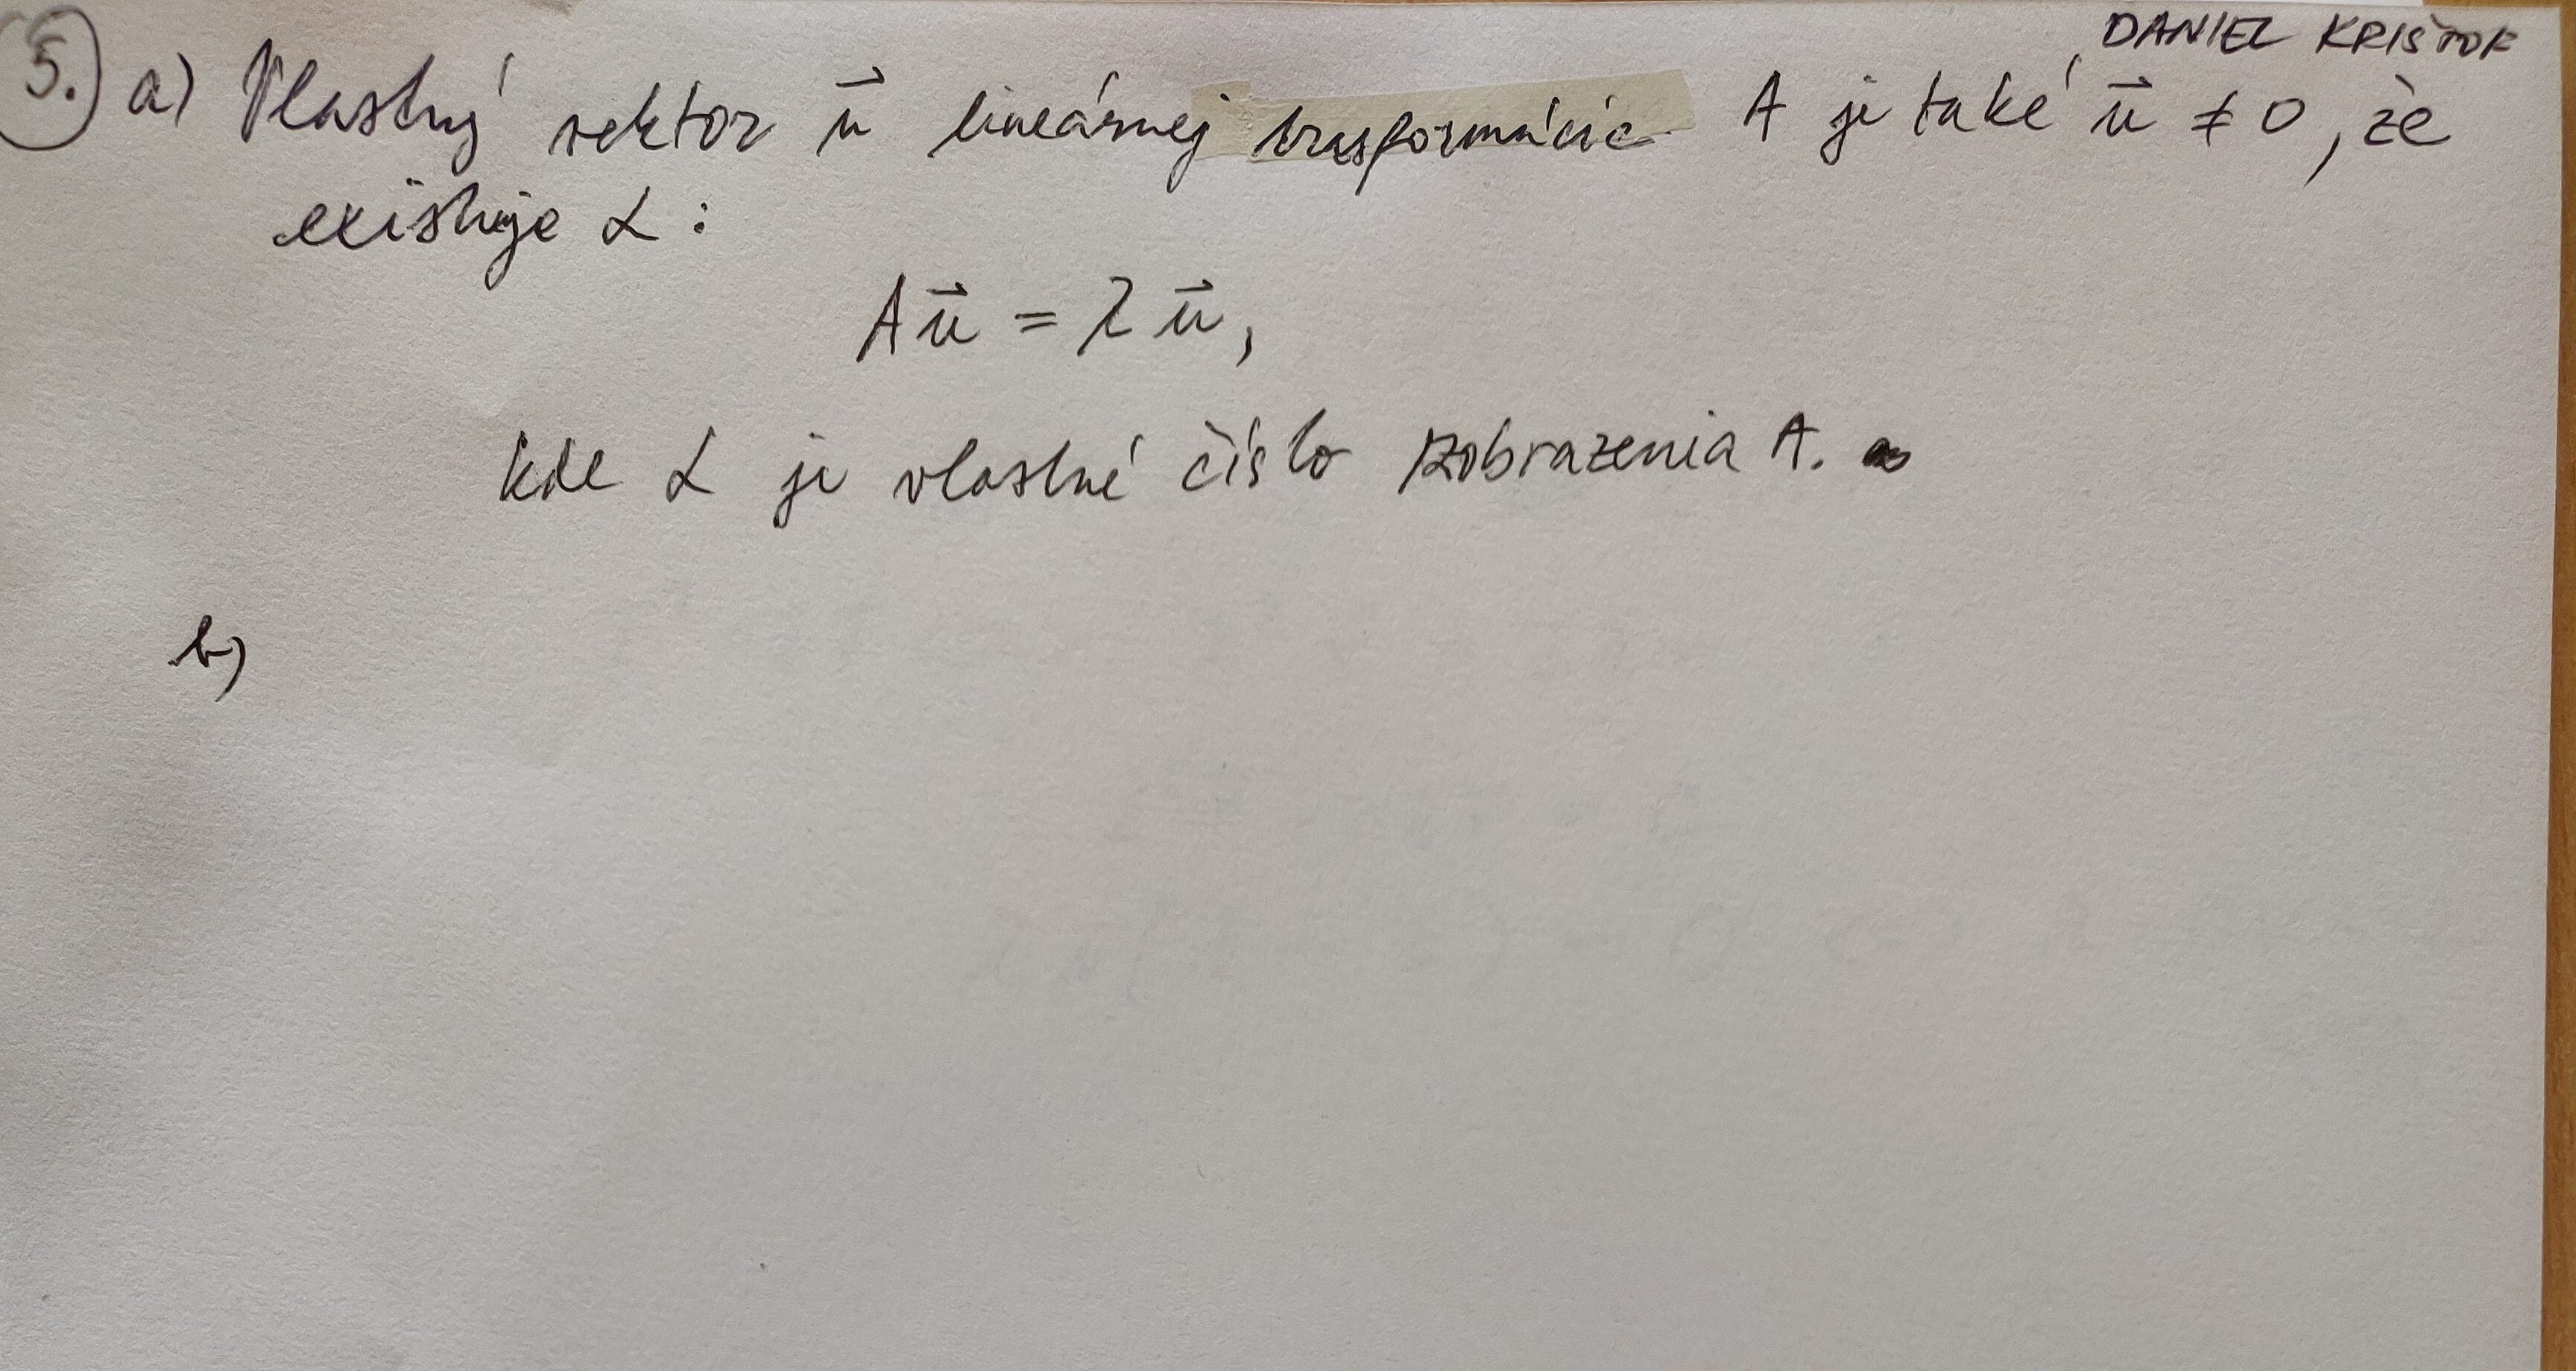 DANIEL KRIŠTOF
5. a) Vlastný vektor u⃗ lineárnej trasformácie A je také u⃗ ≠ 0, že
existuje α :
Au⃗ = λu⃗,
kde α je vlastné číslo zobrazenia A.
b)